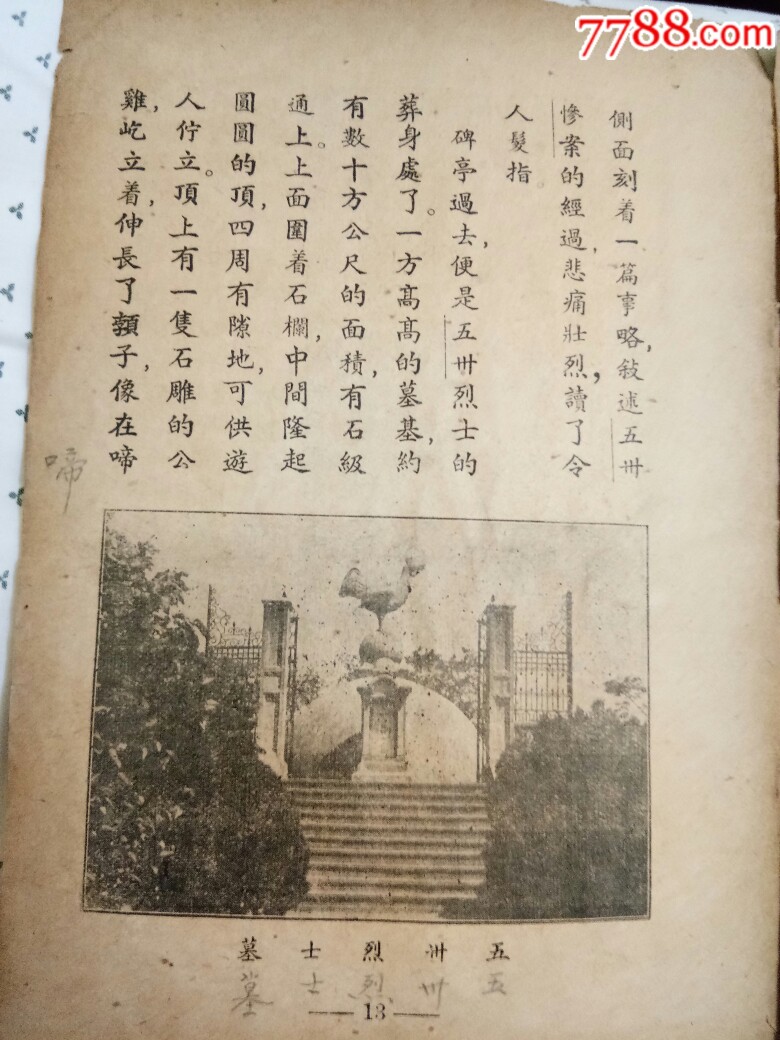 7788.com
側面刻着一篇事略,敍述五卅
慘案的經過,悲痛壯烈,讀了令
人髮指
碑亭過去,便是五卅烈士的
葬身處了。一方髙髙的墓基,約
有數十方公尺的面積,有石級
通上。上面圍着石欄,中間隆起
圓圓的頂,四周有隙地,可供遊
人佇立。頂上有一隻石雕的公
雞,屹立着,伸長了頸子,像在啼
啼
五卅烈士墓
五卅烈士墓
— 13 —